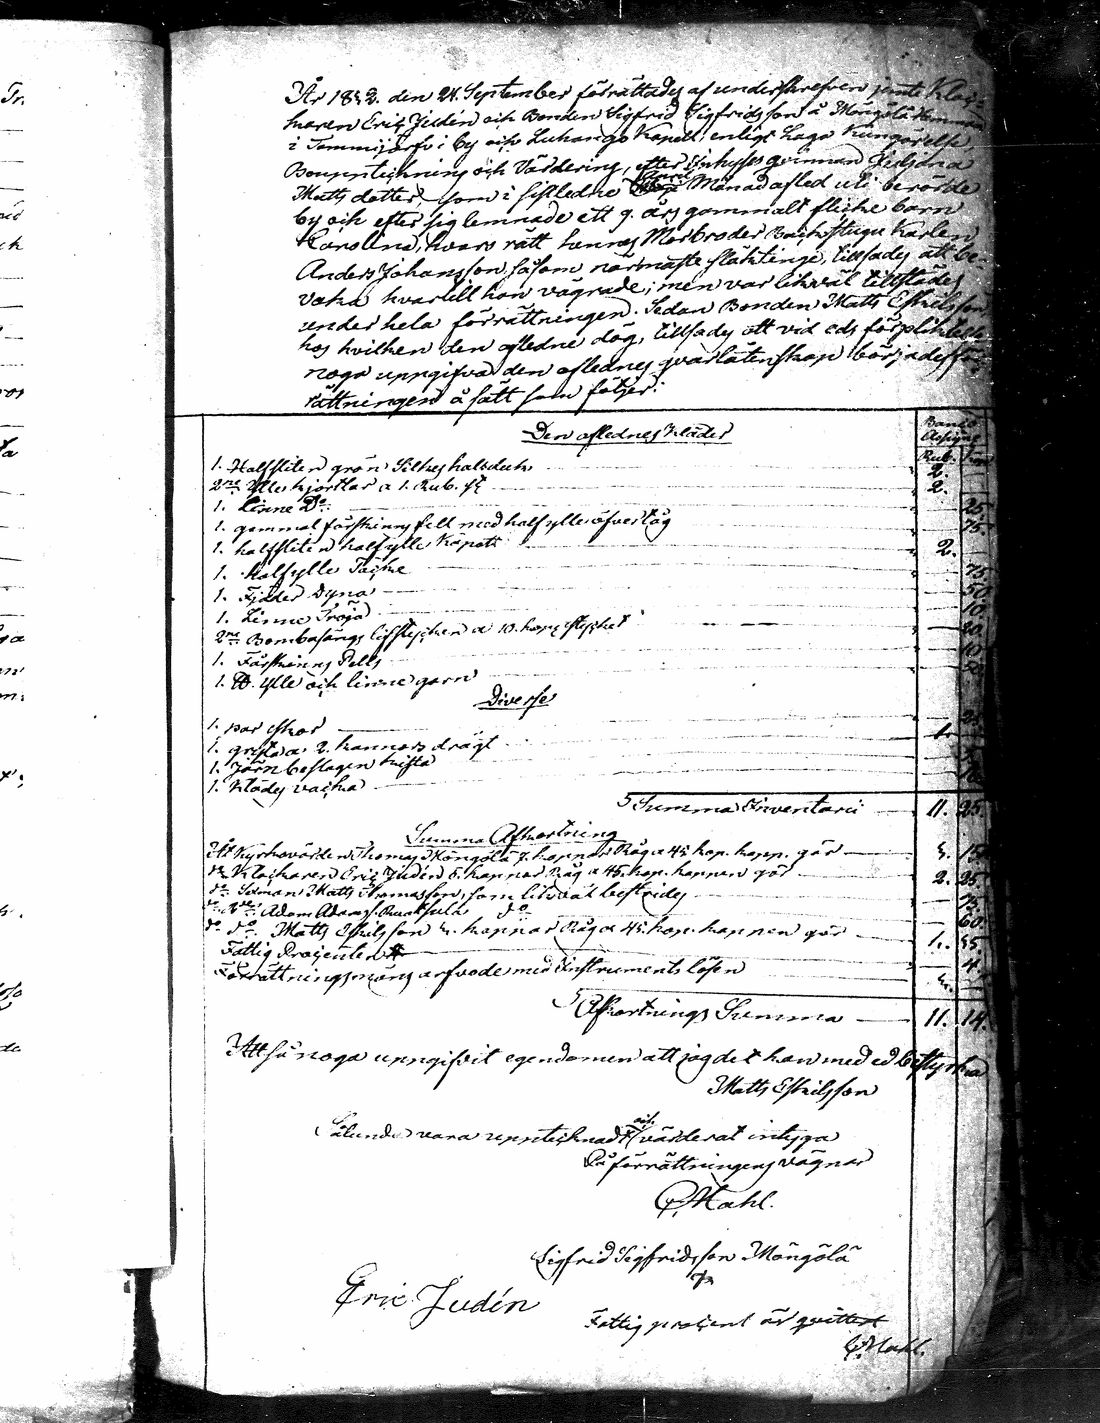 År 1842. den 24. September förrättades af underskrefven jemte Kloc-
karen Eric Judén och Bonden Sigfrid Sigfridsson å Möngölä Hemman
i Tammijärfvi by och Luhango Kapell, enligt Laga Kungörelse
Bouppteckning och Värdering, efter Inhyses qvinnan
Matts dotter, som i sistledne Månad afled uti berörde
by och efter sig lemnade ett 9. års gammalt flicke barn
Karolina, hvars rätt hennes Morbroder Backstugu Karlen
Anders Johansson, såsom närmaste släktinge, tillsades att be-
vaka hvartill han vägrade; men var likväl tillstädes
under hela förrättningen. Sedan Bonden Matts Eskilsson,
hos hvilken den aflednе dög, tillsades att vid eds förpliktelse
noga uppgifva den aflednes qvarlåtenskap börjades för-
rättningen å sätt som följer:
Banco
Assigne
Rub. Kop
Den aflednes kläder
1. Halfsliten grön Silkes halsduk 2.
2ne Ylle kjortlar a 1. Rub. st. 2.
1. Linne Do 25.
1. gammal fårskinns fell med halfylle öfvertåg 75.
1. halfsliten halfylle Kapott 2.
1. Halfylle Täcke 75.
1. Fjäder Dyna 50.
1. Linne Tröja 10.
2ne Bombasings lifstycken a 10. kop. stycket 20.
1. Fårskinns Pells 10.
1. ℔ Ylle och linne garn 50.
Diverse
1. par skor
1. gryta a 2. kannors drägt 1.
1. Järnbeslagen kista
1. Klädes väcka
Summa Inventarii 11. 25.
Summa Afkortning
Till Kyrkovärden Thomas Möngölä 7. kappar Råg a 45 kop. kapp. gör 3. 15.
do Klockaren Eric Judén 5. kappar Råg a 45. kop. kappen gör 2. 25.
do Matts Thomasson, som likväl bestrides 75.
do Adam Adamss. do 60.
do do Matts Eskilsson 3. kappar Råg a 45. kop. kappen gör 1. 35.
Fattig Procenten 4.
Förrättningsmäns arfvode med Instruments lösen 3.
Afkortnings Summa 11. 14.
Att så noga uppgifvit egendomen att jag det kan med ed bestyrka
Matts Eskilsson
Sålunda vara upptecknadt och värderat intyga
På förrättningens vägnar
C. Stahl.
Sigfrid Sigfridsson Möngölä
Eric Judén
Fattig procent är qvitterat
C. Stahl.